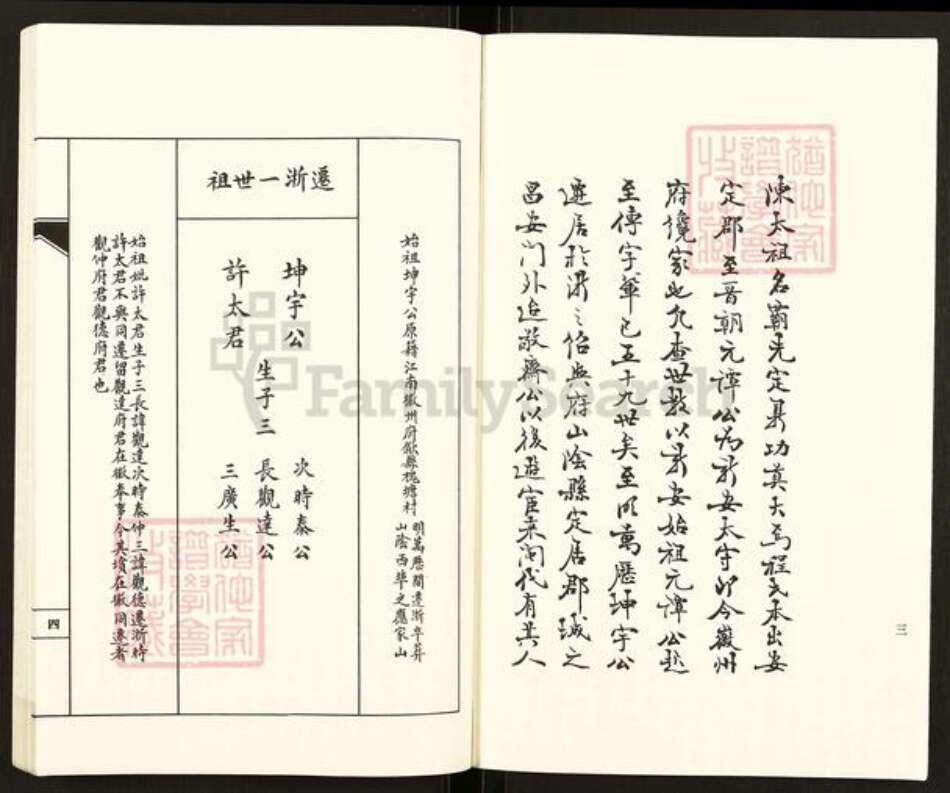 陳太祖名霸先定鼎功莫大焉程氏本出安
定郡至晉朝元譚公為新安太守即今徽州
府擕家也凡查世教以新安始祖元譚公起
至傳字輩已五十九世矣至明萬歷坤宇公
遷居於浙之紹興府山陰縣定居郡城之
昌安門外迨敬齊公以後遊宦來閩代有其人
三
始祖坤宇公原籍江南徽州府歙縣槐塘村
明萬歷間遷浙卒葬
山陰西華之應家山
遷浙一世祖
坤宇公
許太君
生子三
次時泰公
長觀達公
三廣生公
始祖妣許太君生子三長諱觀達次時泰仲三諱觀德遷浙時
許太君不與同遷留觀達府君在徽奉事今其墳在徽同遷者
觀仲府君觀德府君也
四
FamilySearch